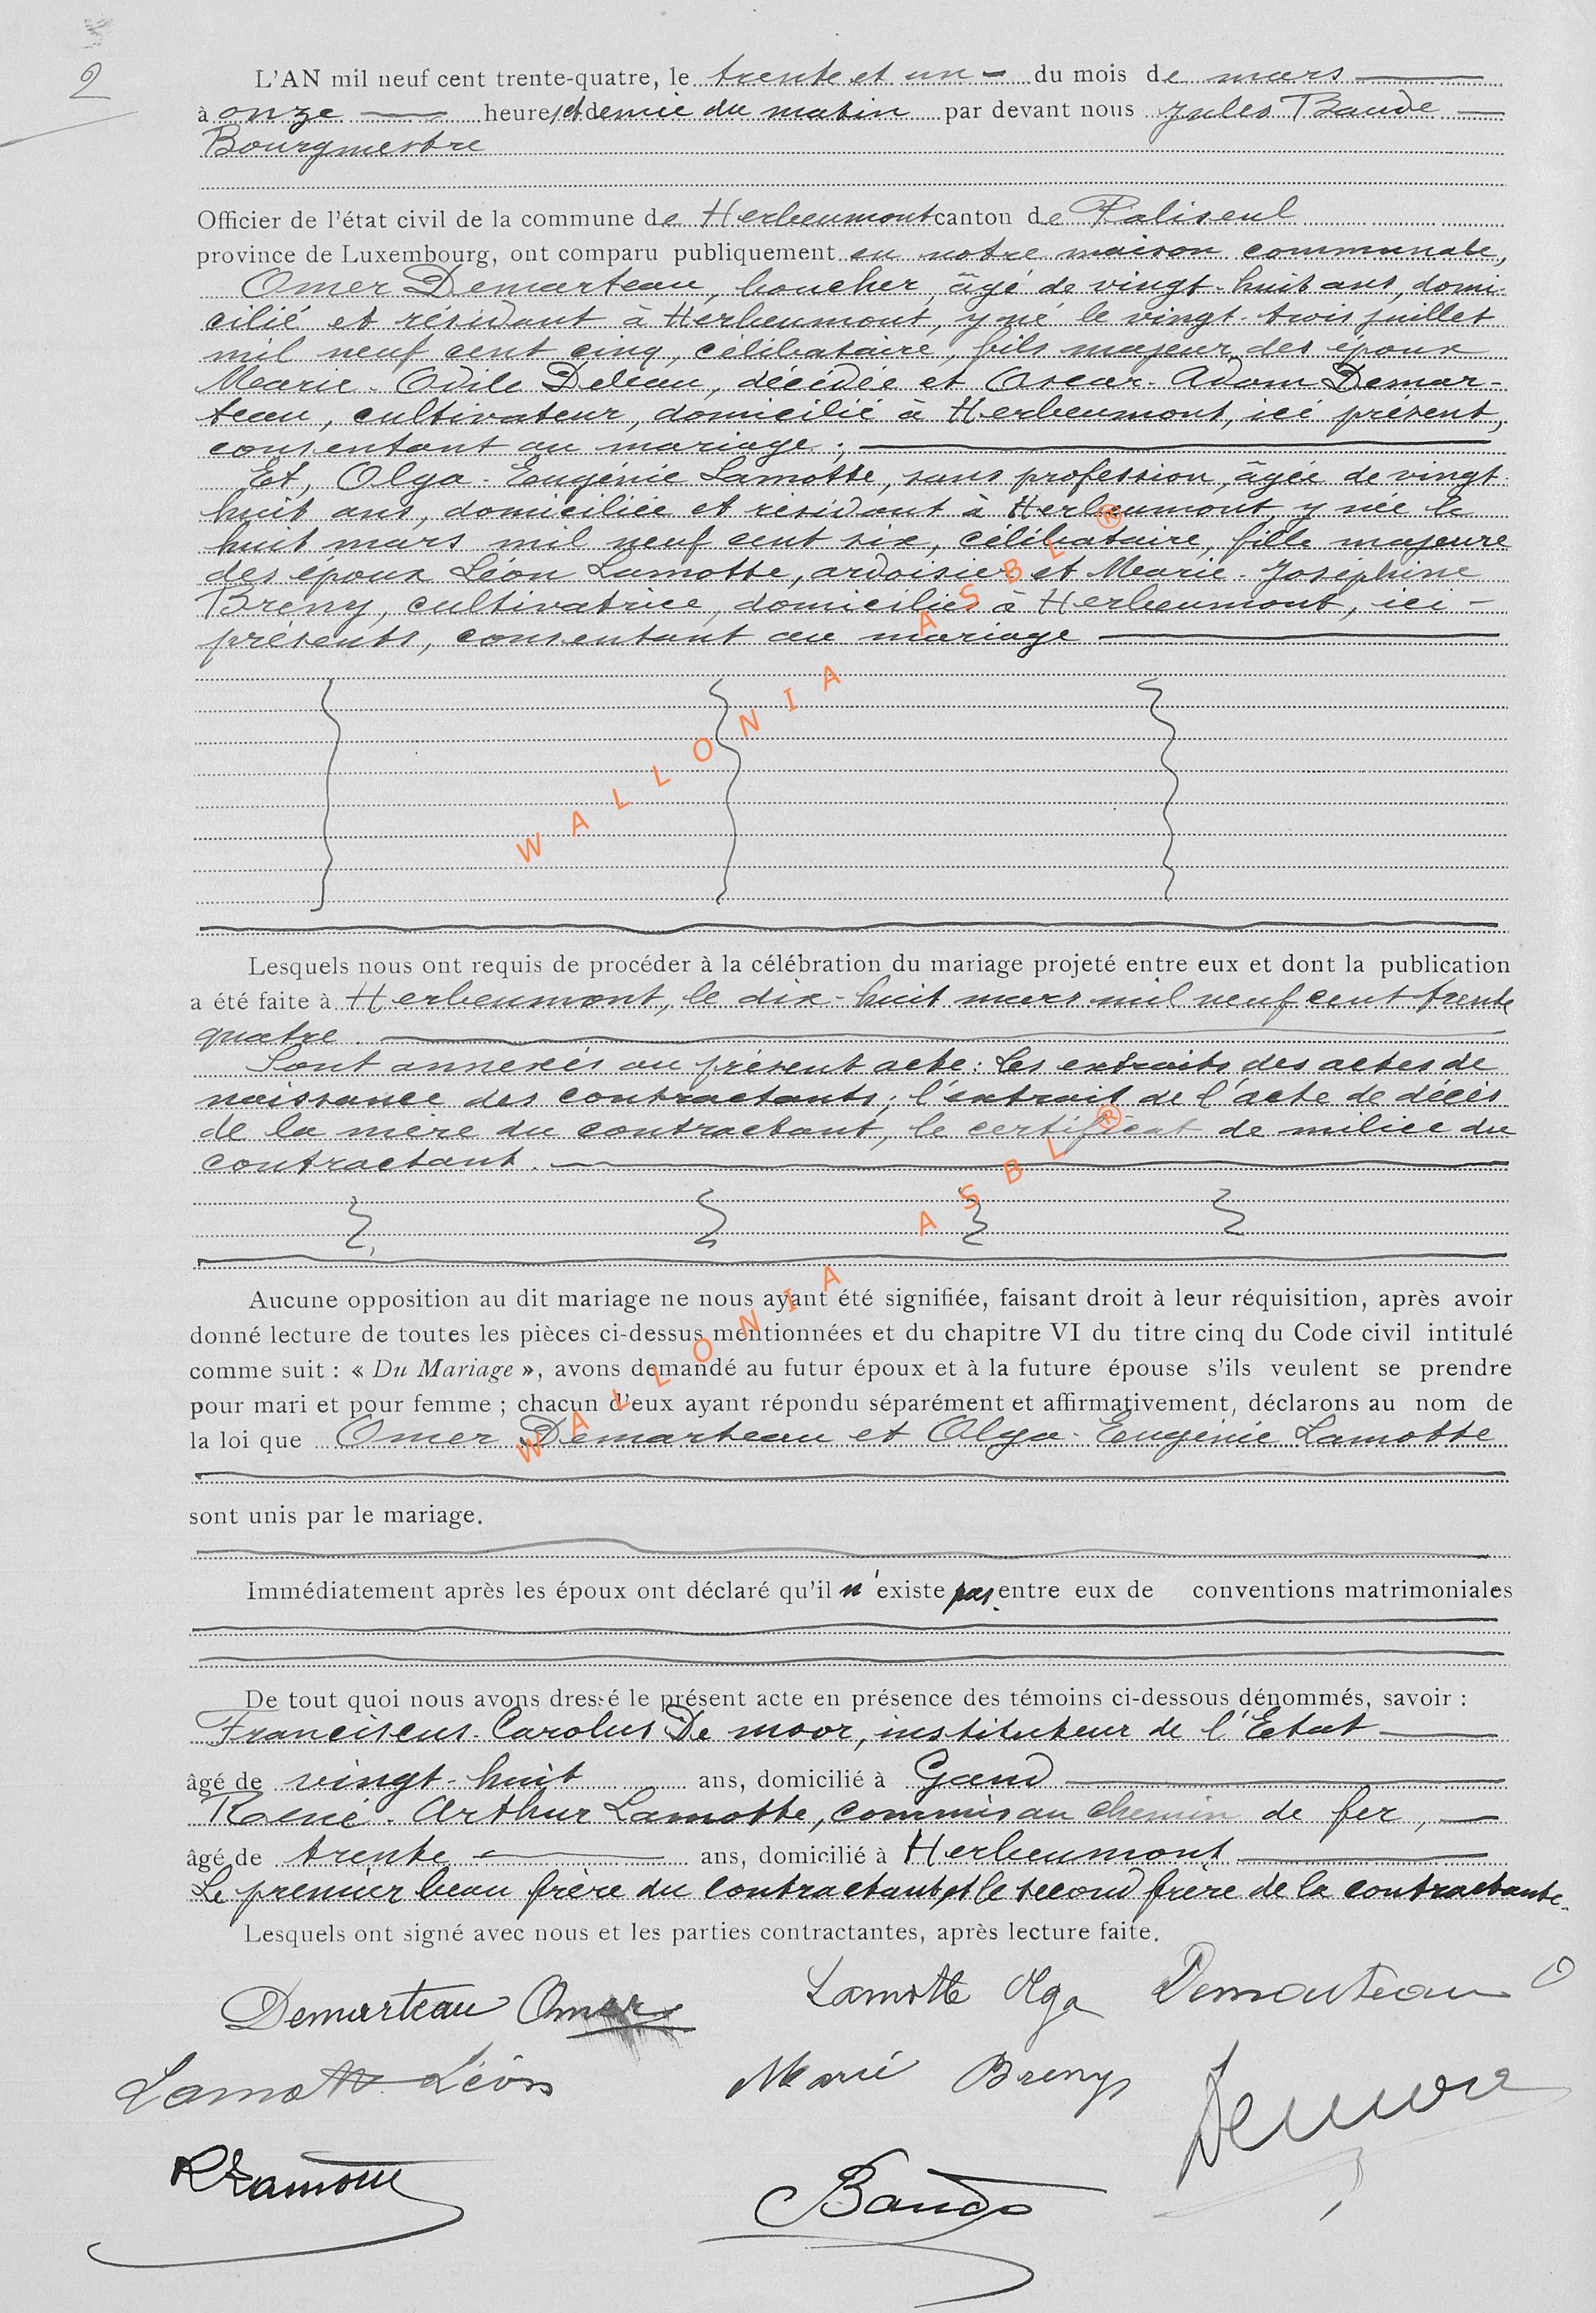 2
L'AN mil neuf cent trente-quatre, le trente et un du mois de mars
à onze heures et demie du matin par devant nous Jules Baude
Bourgmestre
Officier de l'état civil de la commune de Herbeumont canton de Paliseul
province de Luxembourg, ont comparu publiquement en notre maison communale,
Omer Demarteau, boucher, âgé de vingt-huit ans, domi-
cilié et résidant à Herbeumont, y né le vingt-trois juillet
mil neuf cent cinq, célibataire, fils majeur des époux
Marie-Odile Deleau, décédée et Oscar-Adam Demar-
teau, cultivateur, domicilié à Herbeumont, ici présent,
consentant au mariage ;
Et, Olga-Eugénie Lamotte, sans profession, âgée de vingt-
huit ans, domiciliée et résidant à Herbeumont y née le
huit mars mil neuf cent six, célibataire, fille majeure
des époux Léon Lamotte, ardoisier et Marie-Joséphine
Breny, cultivatrice, domiciliés à Herbeumont, ici-
présents, consentant au mariage
WALLONIA ASBL ®
Lesquels nous ont requis de procéder à la célébration du mariage projeté entre eux et dont la publication
a été faite à Herbeumont, le dix-huit mars mil neuf cent trente
quatre.
Sont annexés au présent acte : Les extraits des actes de
naissance des contractants ; l'extrait de l'acte de décès
de la mère du contractant, le certificat de milice du
contractant.
WALLONIA ASBL ®
Aucune opposition au dit mariage ne nous ayant été signifiée, faisant droit à leur réquisition, après avoir
donné lecture de toutes les pièces ci-dessus mentionnées et du chapitre VI du titre cinq du Code civil intitulé
comme suit : « Du Mariage », avons demandé au futur époux et à la future épouse s'ils veulent se prendre
pour mari et pour femme ; chacun d'eux ayant répondu séparément et affirmativement, déclarons au nom de
la loi que Omer Demarteau et Olga-Eugénie Lamotte
sont unis par le mariage.
Immédiatement après les époux ont déclaré qu'il n'existe pas entre eux de conventions matrimoniales
De tout quoi nous avons dressé le présent acte en présence des témoins ci-dessous dénommés, savoir :
Franciscus-Carolus De moor, instituteur de l'Etat
âgé de vingt-huit ans, domicilié à Gand
René-Arthur Lamotte, commis au chemin de fer,
âgé de trente ans, domicilié à Herbeumont
Le premier beau frère du contractant et le second frère de la contractante.
Lesquels ont signé avec nous et les parties contractantes, après lecture faite.
Demarteau Omer Lamotte Olga Demarteau O
Lamotte Léon Marie Breny Demoor
R Lamotte Baude